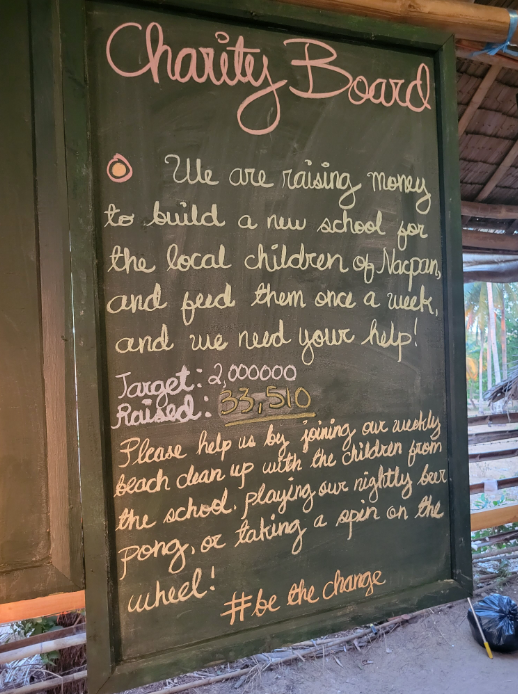 Charity Board
We are raising money
to build a new school for
the local children of Nacpan,
and feed them once a week,
and we need your help!
Target: 2,000000
Raised: 33,510
Please help us by joining our weekly
beach clean up with the children from
the school, playing our nightly beer
pong, or taking a spin on the
wheel!
#be the change